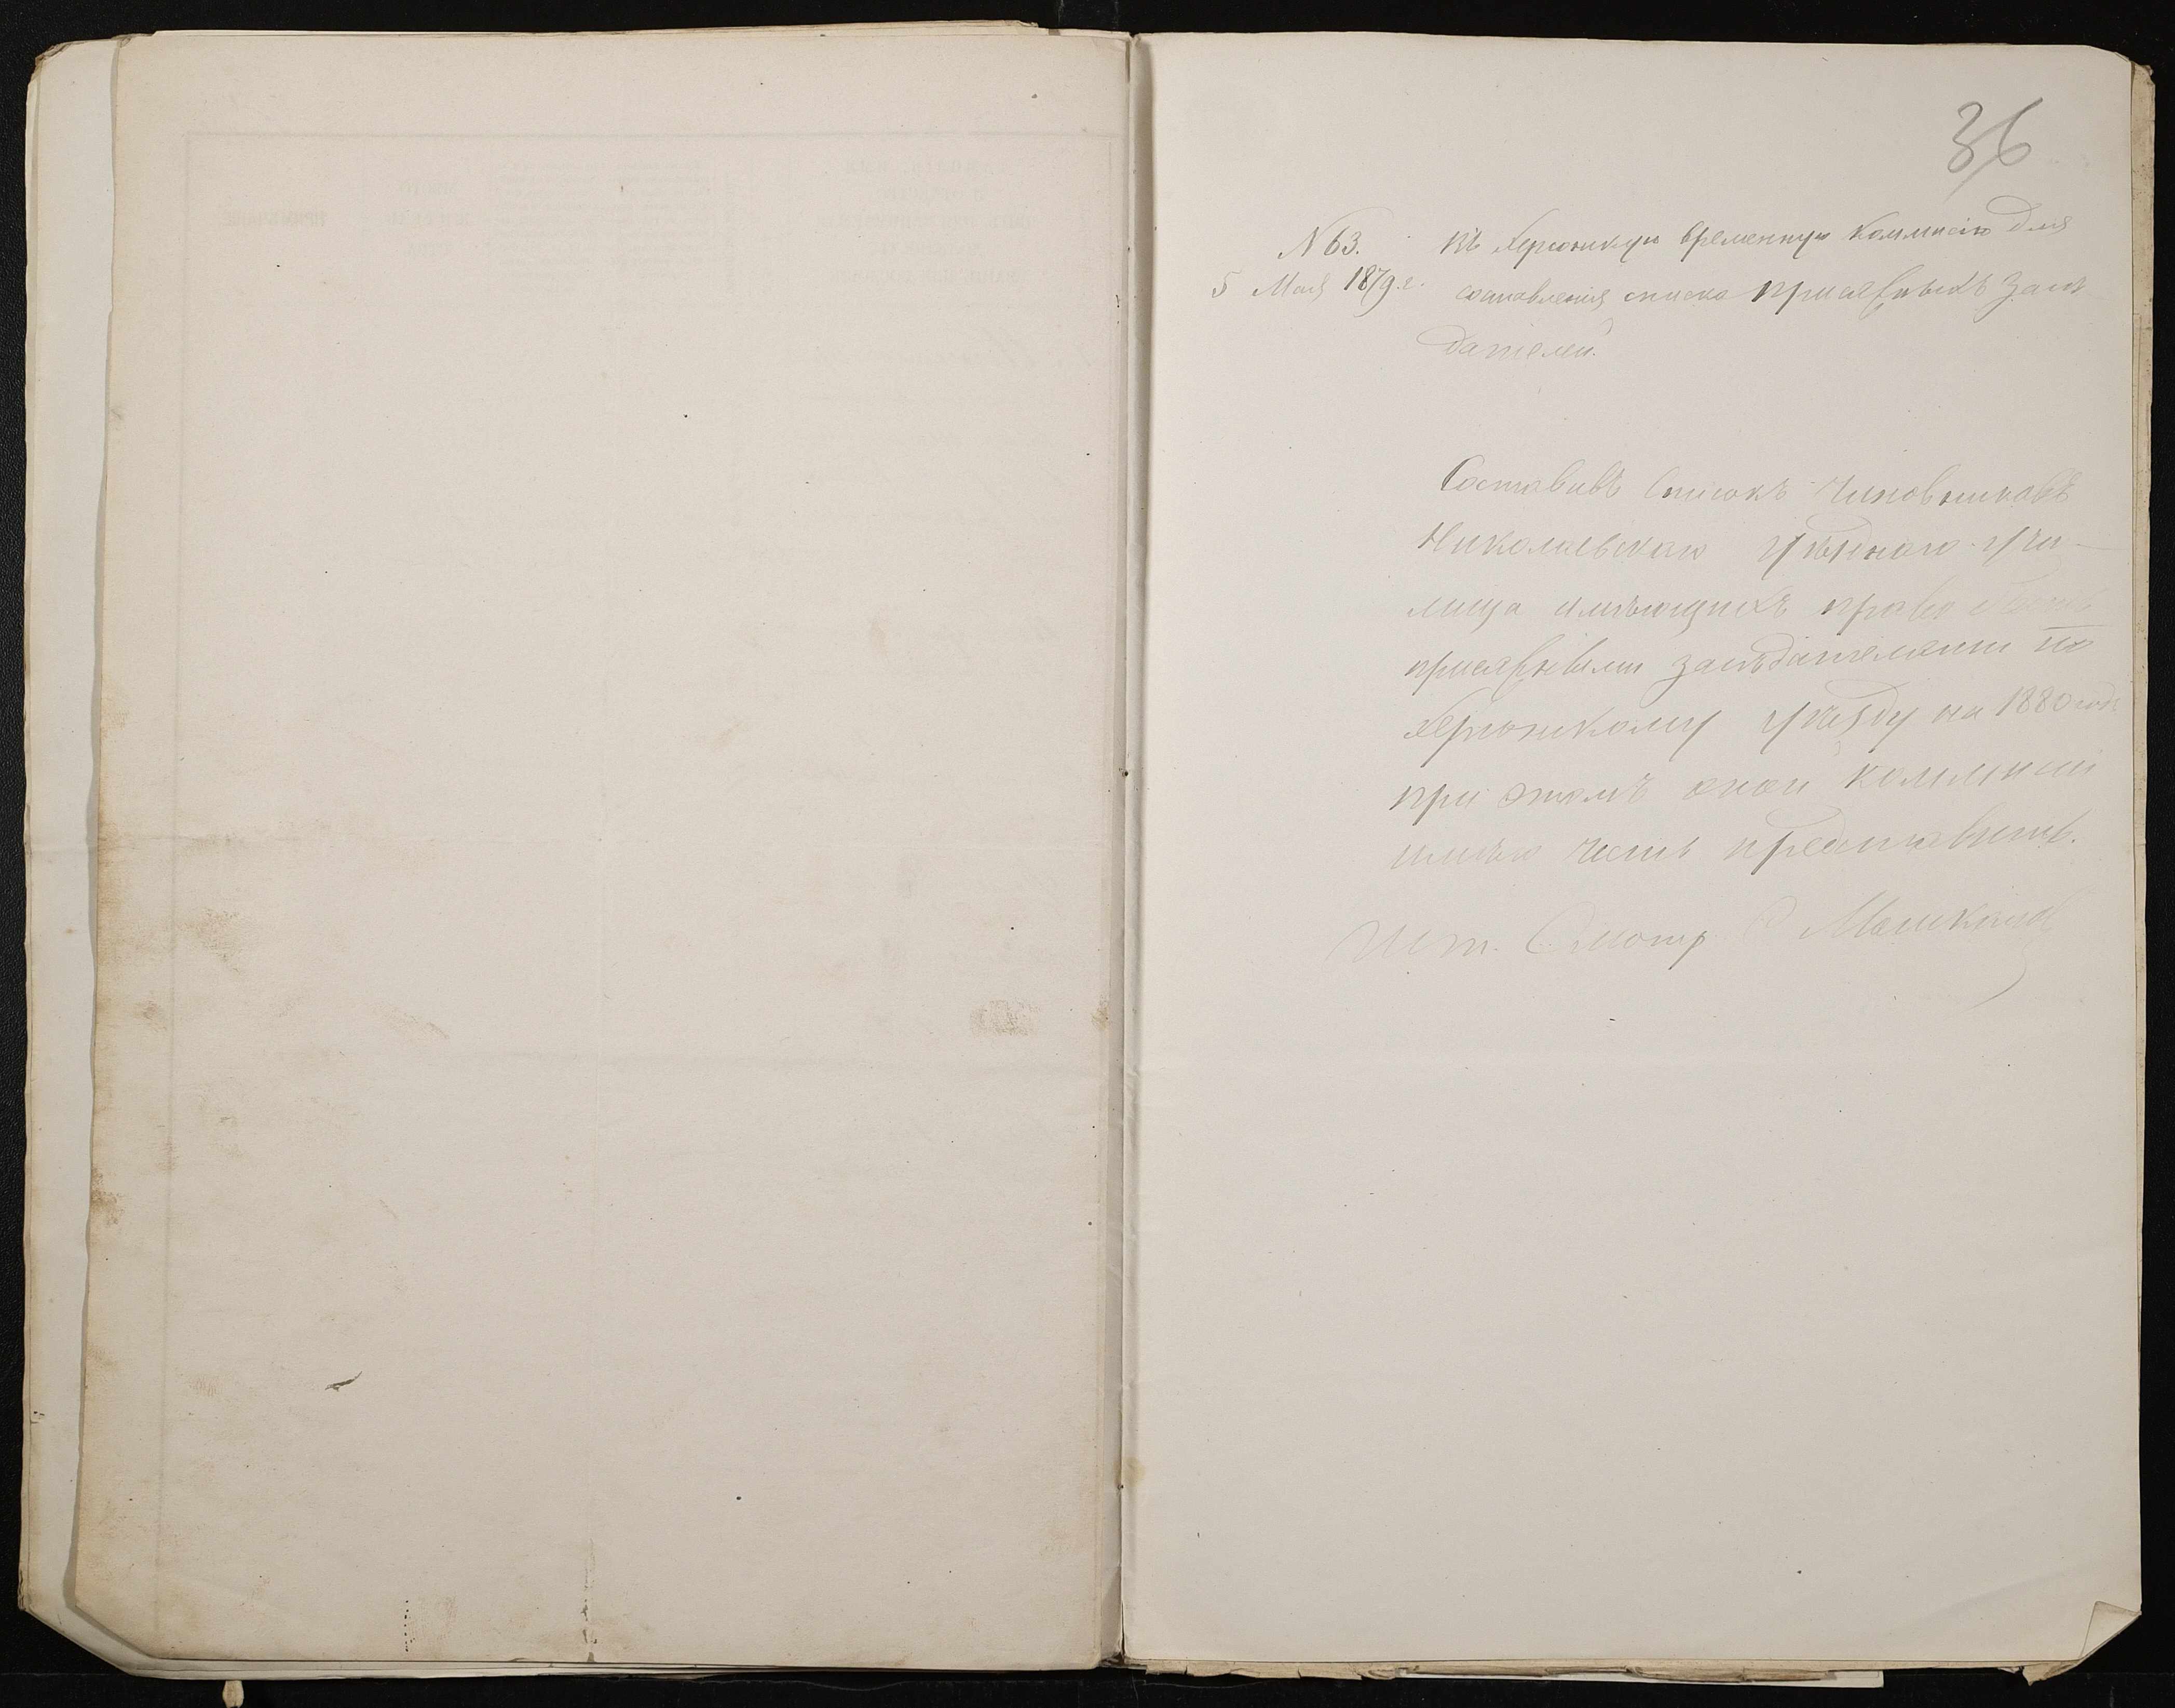 36
№ 63.
5 Мая 1879 г.
Въ Херсонскую временную Коммисію для
составленія списка присяжныхъ засѣ
дателей.
Составивъ Списокъ Чиновниковъ
Николаевскаго Уѣзднаго Учи-
лища имѣющихъ право быть
присяжными засѣдателями по
Херсонскому Уѣзду на 1880 годъ
при этомъ оной коммисіи
имѣю честь представить.
Шт. Смотр